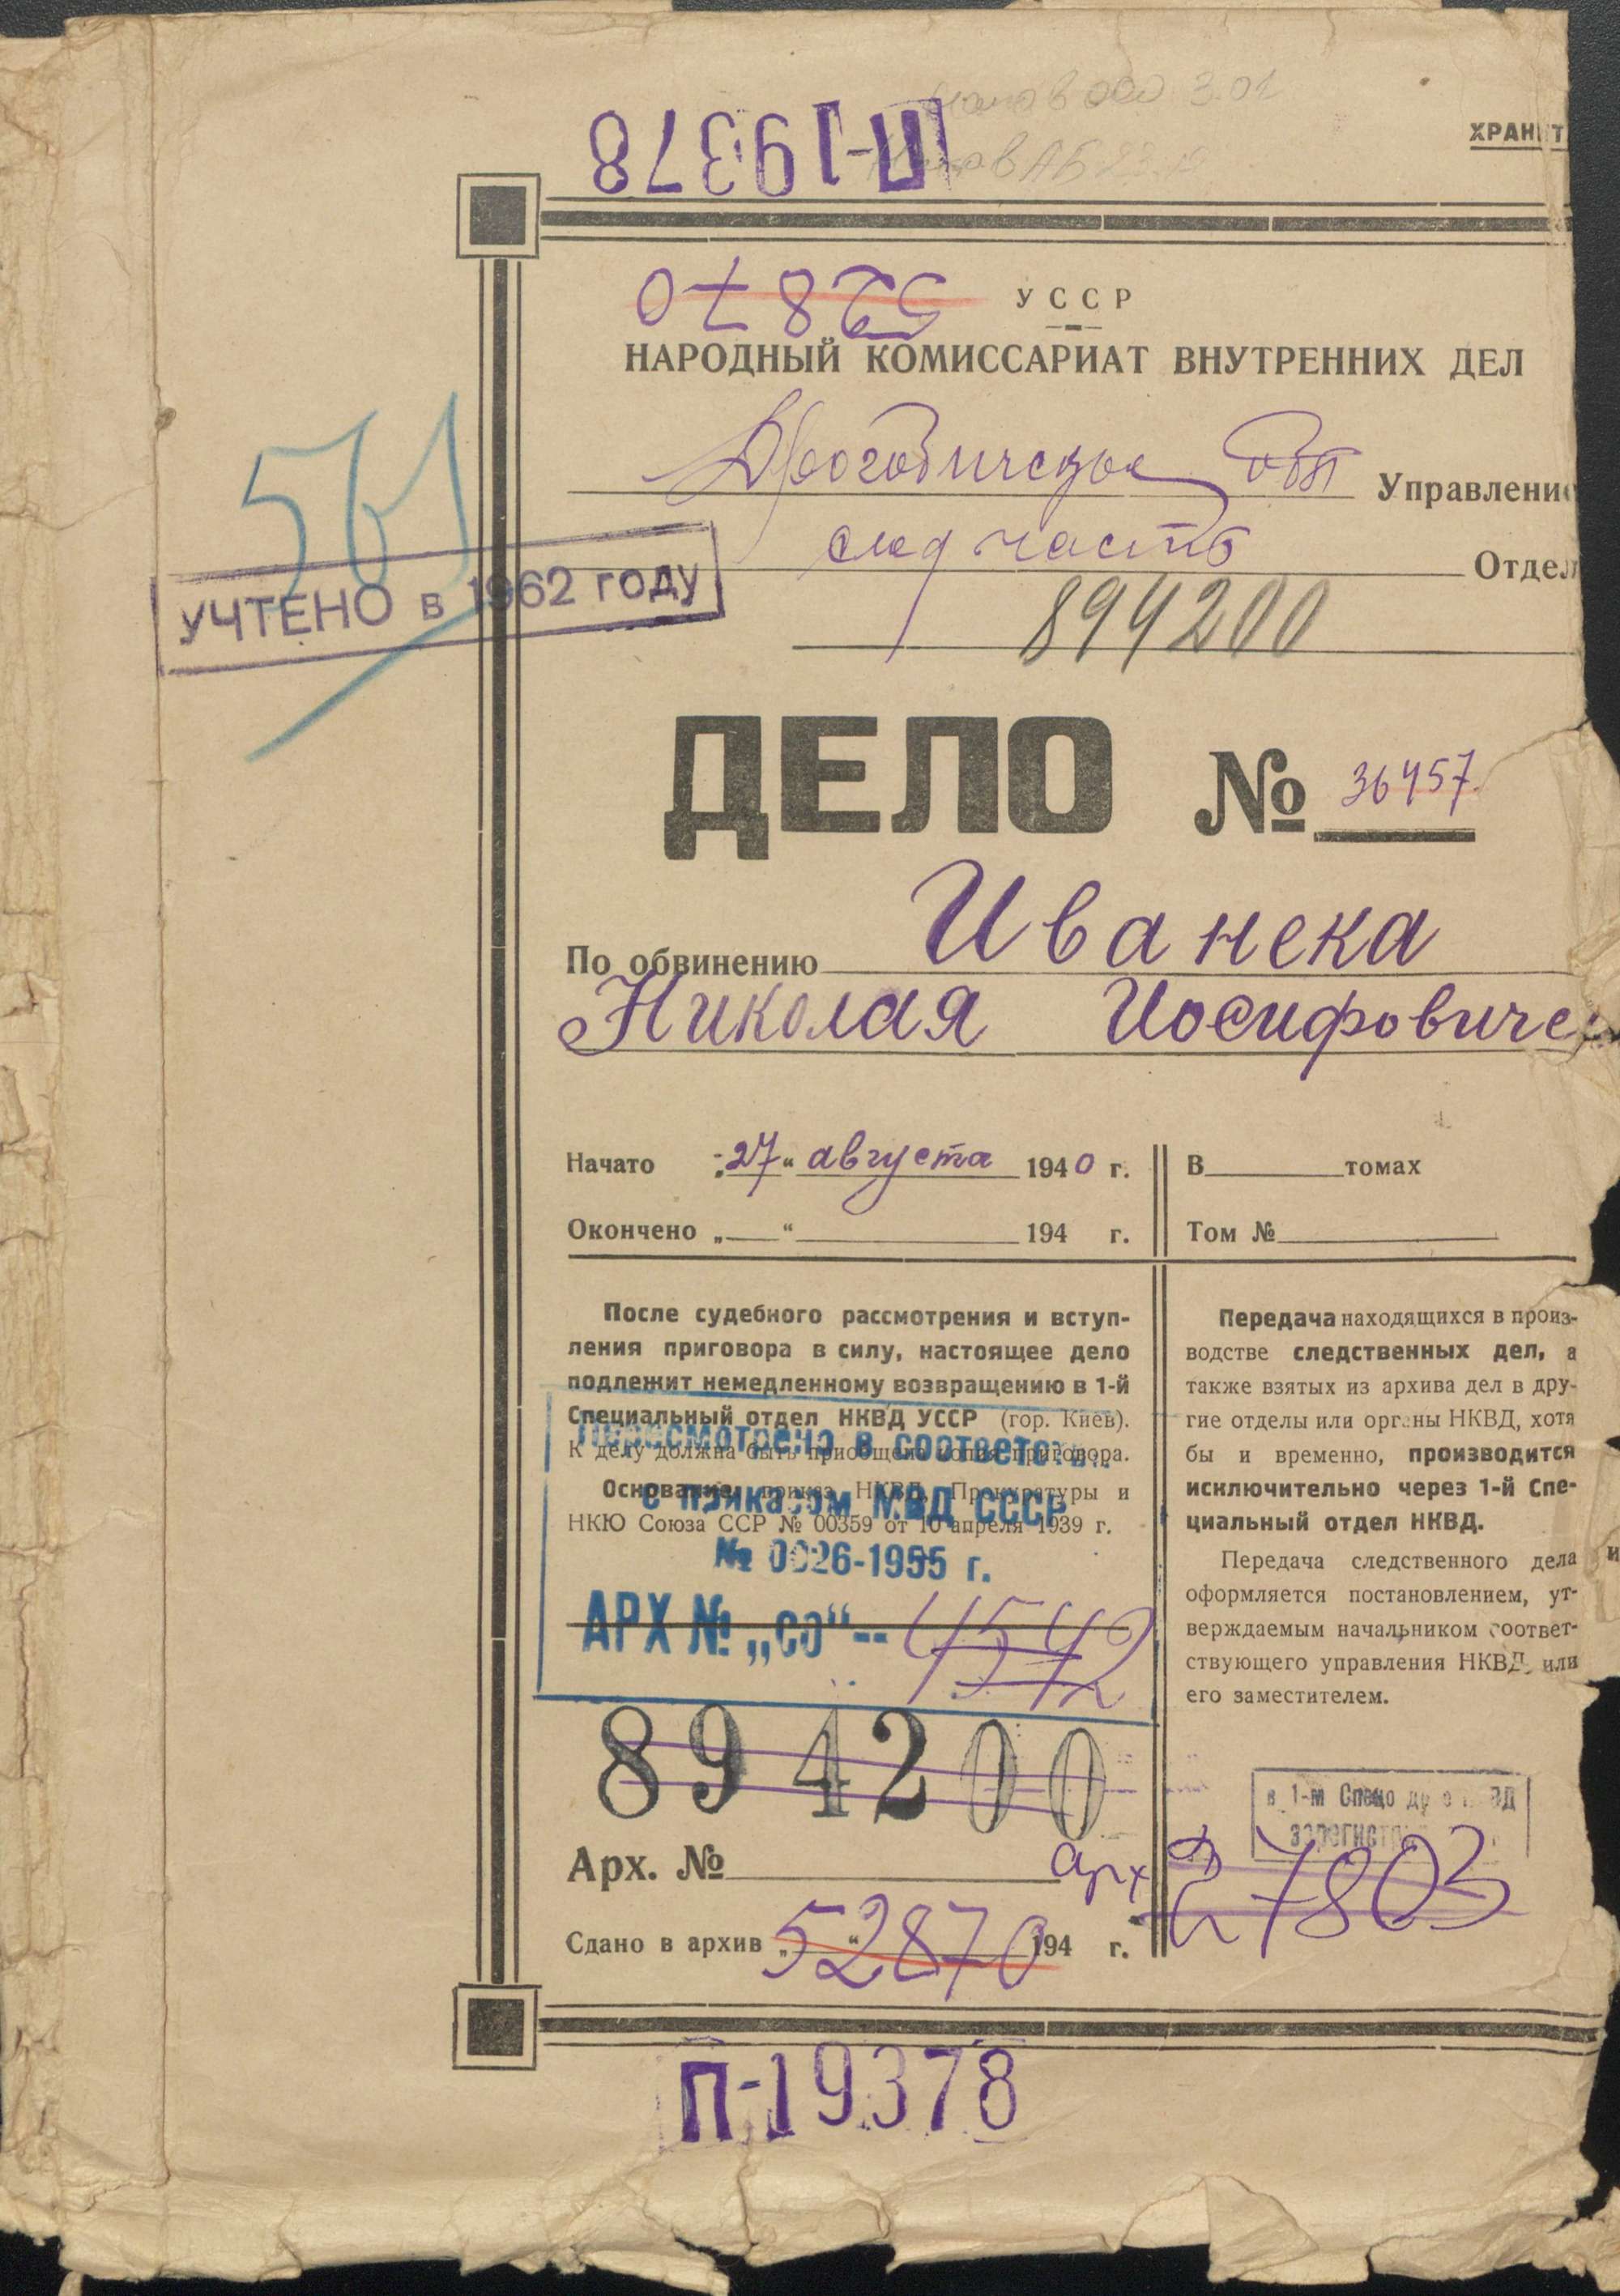 П-19378
ХРАНИТ
52870
УССР
НАРОДНЫЙ КОМИССАРИАТ ВНУТРЕННИХ ДЕЛ
Дрогобичское Обл Управление
след часть Отдел
561
УЧТЕНО в 1962 году
894200
ДЕЛО № 36457.
По обвинению Иванека
Николая Иосифовича
Начато „27“ августа 1940 г.
В томах
Окончено „ “ 194 г.
Том №
После судебного рассмотрения и вступ-
ления приговора в силу, настоящее дело
подлежит немедленному возвращению в 1-й
Специальный отдел НКВД УССР (гор. Киев).
К делу должна быть приобщена копия приговора.
Основание: приказ НКВД, Прокуратуры и
НКЮ Союза ССР № 00359 от 10 апреля 1939 г.
Пересмотрено в соответств.
с приказом МВД СССР
№ 0026-1955 г.
АРХ № „со“-- 4542
Передача находящихся в произ-
водстве следственных дел, а
также взятых из архива дел в дру-
гие отделы или органы НКВД, хотя
бы и временно, производится
исключительно через 1-й Спе-
циальный отдел НКВД.
Передача следственного дела
оформляется постановлением, ут-
верждаемым начальником соответ-
ствующего управления НКВД или
его заместителем.
894200
в 1-м Спецо
Арх. №
арх 27803
Сдано в архив „ “ 194 г.
52870
П-19378